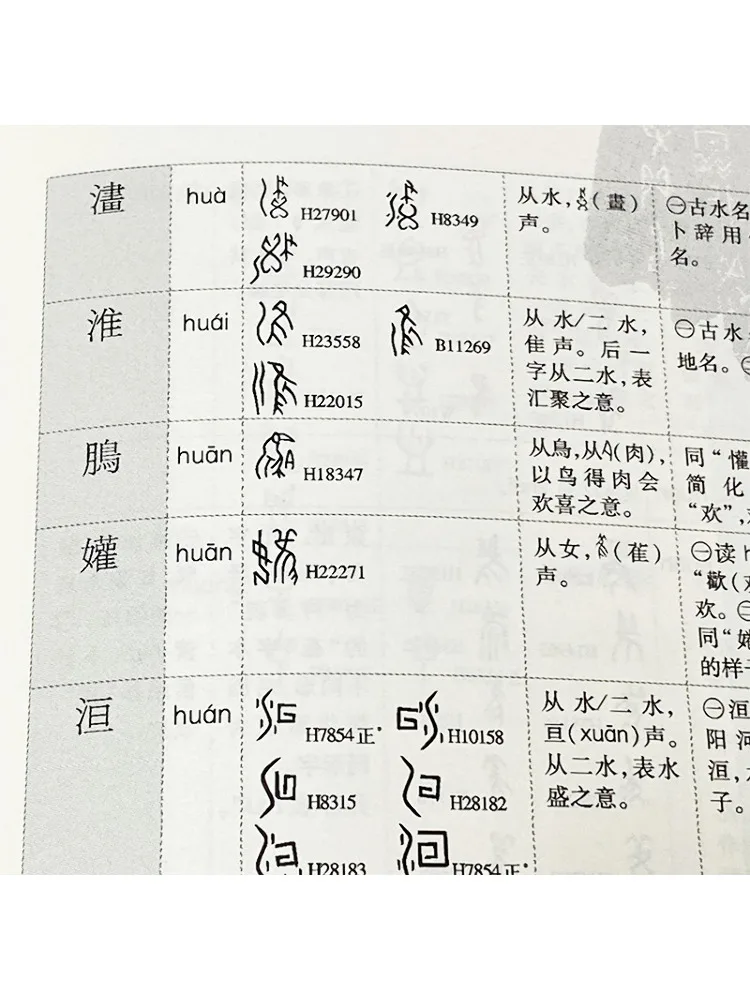 澅 huà H27901 H8349 从水，(畫) ㊀古水名
H29290 声。 卜辞用
名。
淮 huái H23558 B11269 从水/二水， ㊀古水
H22015 隹声。后一 地名。
字从二水，表
汇聚之意。
鵙 huān H18347 从鳥，从(肉)， 同“懽
以鸟得肉会 简化
欢喜之意。 “欢”，
孉 huān H22271 从女，(萑) ㊀读h
声。 “歡(
欢。㊁
同“
的样子
洹 huán H7854正* H10158 从水/二水， ㊀洹
H8315 H28182 亘(xuān)声。 阳河
H28183 H7854正* 从二水，表水 洹，
盛之意。 子。